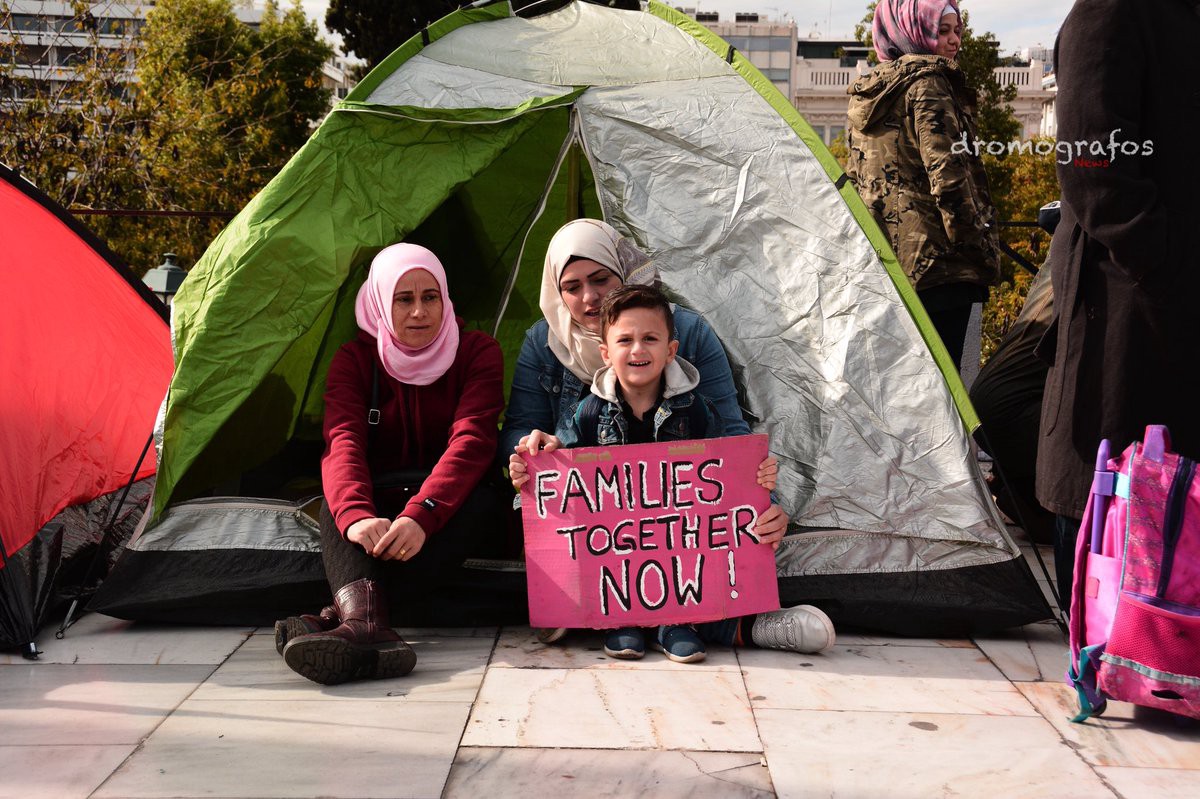 dromografos
News
FAMILIES
TOGETHER
NOW!